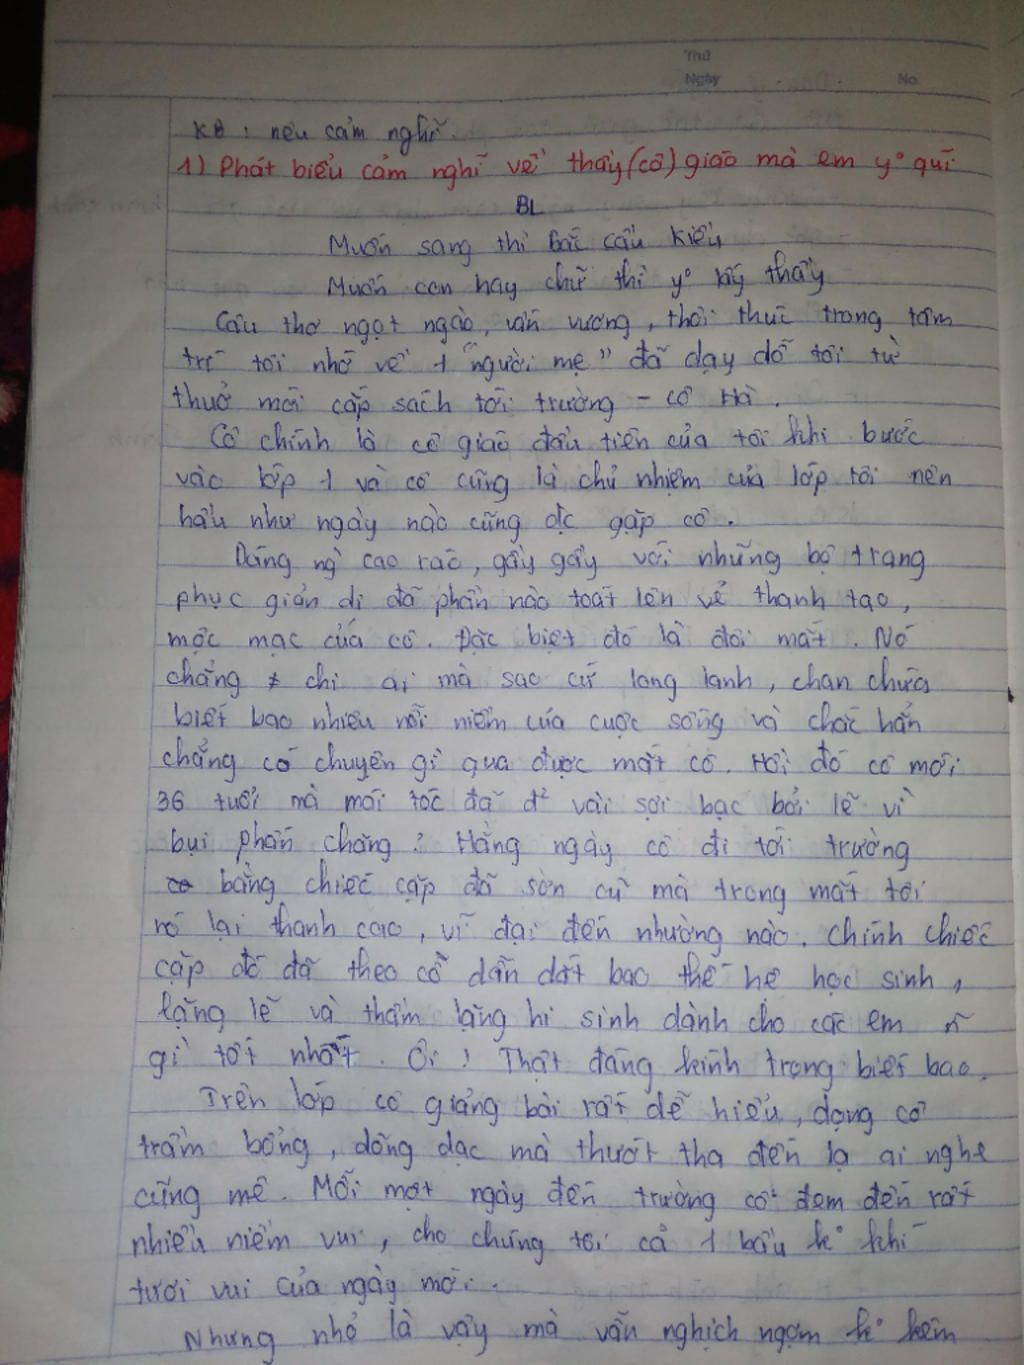 Thứ
Ngày No.
KB : nêu cảm nghĩ
1) Phát biểu cảm nghĩ về thầy (cô) giáo mà em y° quí
BL
Muốn sang thì bắc cầu kiều
Muốn con hay chữ thì y° lấy thầy
Câu thơ ngọt ngào, vấn vương, thôi thúc trong tâm
trí tôi nhớ về 1 "người mẹ" đã dạy dỗ tôi từ
thuở mới cắp sách tới trường - cô Hà.
Cô chính là cô giáo đầu tiên của tôi khi bước
vào lớp 1 và cô cũng là chủ nhiệm của lớp tôi nên
hầu như ngày nào cũng đc gặp cô.
Dáng ng` cao ráo, gầy gầy với những bộ trang
phục giản dị đã phần nào toát lên vẻ thanh tạo,
mộc mạc của cô. Đặc biệt đó là đôi mắt. Nó
chẳng chi ai mà sao cứ long lanh, chan chứa
biết bao nhiêu nỗi niềm của cuộc sống và chắc hẳn
chẳng có chuyện gì qua được mắt cô. Hồi đó cô mới
36 tuổi mà mái tóc đã đ² vài sợi bạc bởi lẽ vì
bụi phấn chăng? Hằng ngày cô đi tới trường
bằng chiếc cặp đã sờn cũ mà trong mắt tôi
nó lại thanh cao, vĩ đại đến nhường nào. Chính chiếc
cặp đó đã theo cô dẫn dắt bao thế hệ học sinh,
lặng lẽ và thầm lặng hi sinh dành cho các em n~
gì tốt nhất. Ôi! Thật đáng kính trọng biết bao.
Trên lớp cô giảng bài rất dễ hiểu, dọng cô
trầm bổng, dõng dạc mà thướt tha đến lạ ai nghe
cũng mê. Mỗi một ngày đến trường cô đem đến rất
nhiều niềm vui, cho chúng tôi cả 1 bầu k° khí
tươi vui của ngày mới.
Nhưng nhỏ là vậy mà vẫn nghịch ngợm k° kém